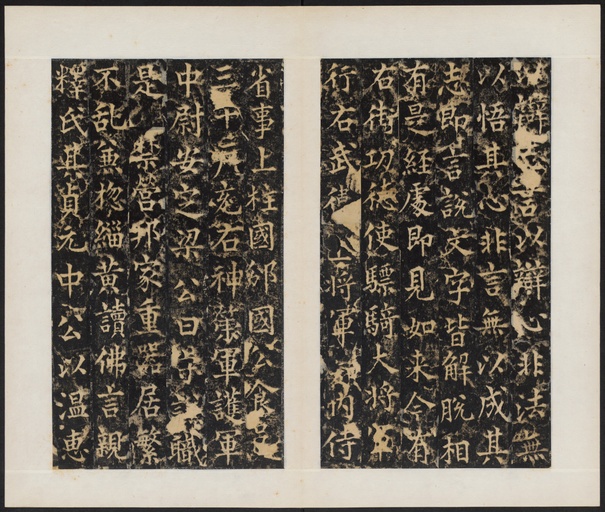 以辯志言以辯心非法無
以悟其心非言無以成其
志即言說文字皆解脫相
有是經處即見如來今有
右街功德使驃騎大將軍
行右武衛上將軍 內侍
省事上柱國邠國公食邑
三千戶充右神策軍護軍
中尉安定梁公曰守謙職
是禁營邦家重器居繁
不乱兼揔緇黃讀佛言親
釋氏其貞元中公以溫惠